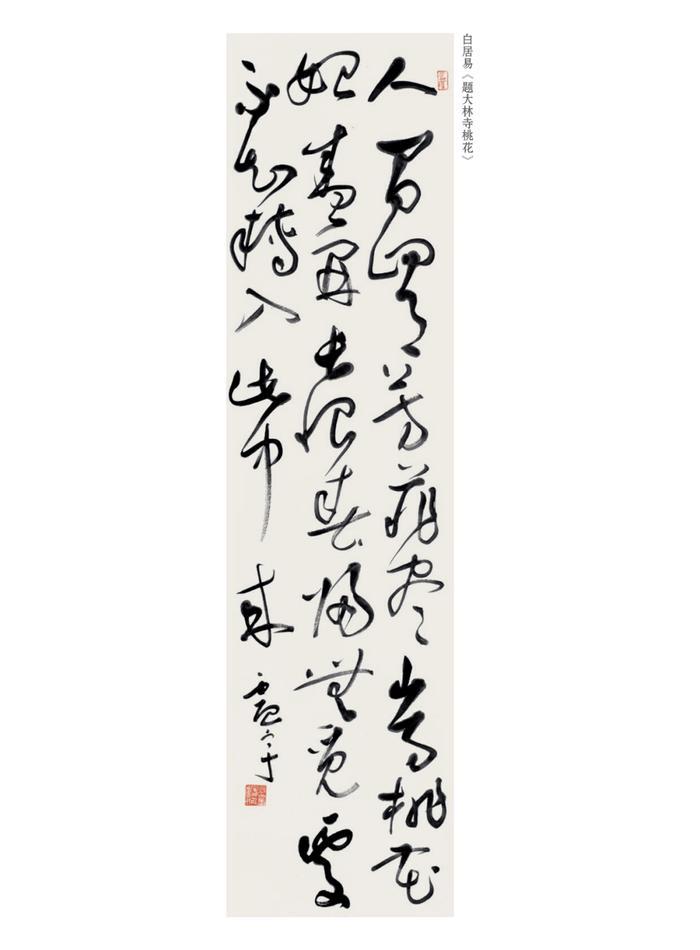 白居易《题大林寺桃花》
人間四月芳菲盡山寺桃花
始盛開長恨春歸無覓處
不知轉入此中來